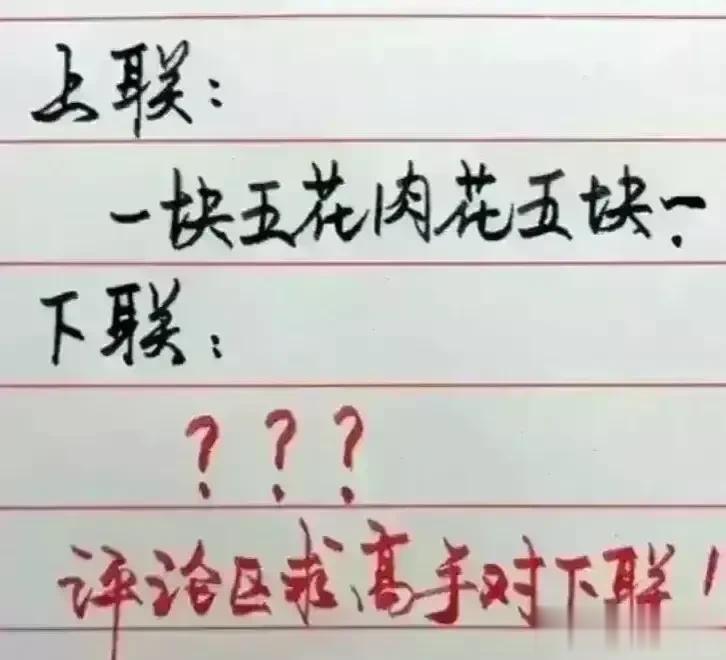 上联：
一块五花肉花五块一.
下联：
？？？
评论区求高手对下联！